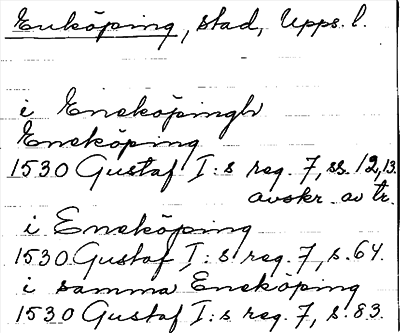 Enköping, stad, Upps. l.
i Eneköpingh
Eneköping
1530 Gustaf I:s reg. 7, ss. 12, 13.
avskr. av tr.
i Eneköping
1530 Gustaf I:s reg. 7, s. 64.
i samma Eneköping
1530 Gustaf I:s reg. 7, s. 83.